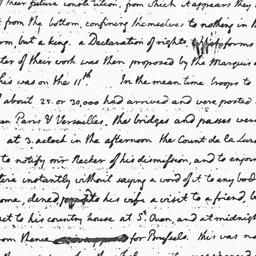 their future constitution, from which it appears they
from the bottom, confining themselves to nothing in th
rm, but a king. a Declaration of rights, forms
ter of their work was then proposed by the Marquis d
his was on the 11th. In the mean time troops to
about 25. or 30,000 had arrived and were posted
en Paris & Versailles. the bridges and passes were
at 3. aclock in the afternoon the Count de la Luze
to notify mr Necker of his dismission, and to enjoin
tire instantly without saying a word of it to any bod
ome, dined, to his wife a visit to a friend, b
act to his country house at St. Ouen, and at midnigh
om thence for Brussels. this was no